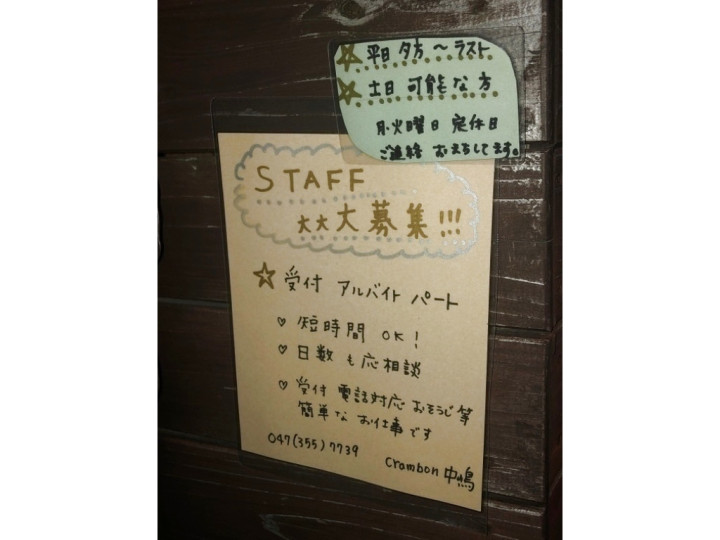 ☆ 平日 夕方 〜 ラスト
☆ 土日 可能な方
月・火曜日 定休日
ご連絡 おまちしてます。
STAFF
大大大募集!!!
☆ 受付 アルバイト パート
♡ 短時間 OK!
♡ 日数も応相談
♡ 受付 電話対応 おそうじ等
簡単な お仕事です
047(355)7739
crambon 中嶋